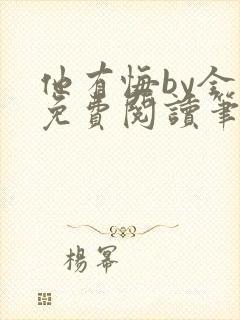 他有悔by金
免費閱讀筆
楊冪